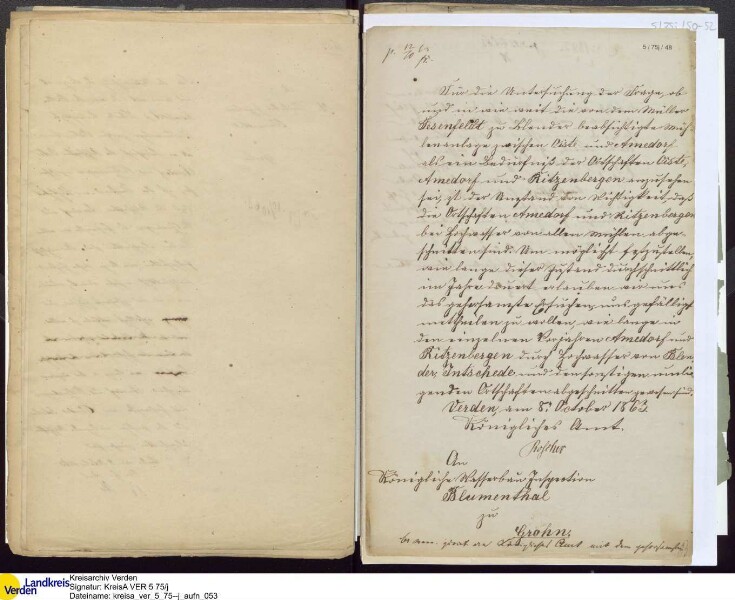 5/75j/50-52
5/75j/48
Für die Untersuchung der Frage, ob
und in wie weit die von dem Müller
Hesenfeldt zu Blender beabsichtigte Müh-
lenanlage zwischen Oiste und Amedorf
als ein Bedürfniß der Ortschaften Oiste,
Amedorf und Ritzenbergen anzusehen
sei, ist der Umstand von Wichtigkeit, daß
die Ortschaften Amedorf und Ritzenbergen
bei Hochwasser von allen Mühlen abge-
schnitten sind. Um möglichst festzustellen,
wie lange dieser Zustand durchschnittlich
im Jahre dauert erlauben wir uns
das gehorsamste Ersuchen, uns gefälligst
mittheilen zu wollen, wie lange in
den einzelnen Vorjahren Amedorf und
Ritzenbergen durch Hochwasser von Blen-
der, Intschede und den sonstigen umlie-
genden Ortschaften abgeschnitten gewesen sind.
Verden, am 8. October 1863.
Königliches Amt.
An
Königliche Wasserbau-Inspection
Blumenthal
zu
Grohn.
Landkreis
Verden
Kreisarchiv Verden
Signatur: KreisA VER 5.75/j
Dateiname: kreisa_ver_5_75--j_aufn_053